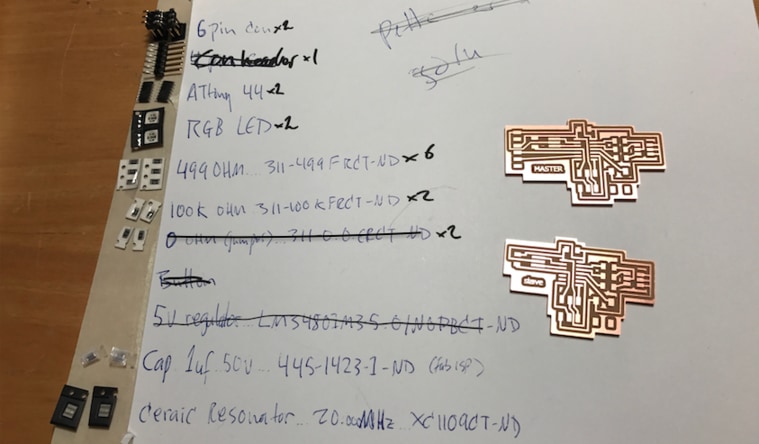 6 pin con x2
Con header x1
ATtiny 44 x2
RGB LED x2
499 OHM... 311-499FRCT-ND x6
100K OHM 311-100KFRCT-ND x2
0 OHM (jumper)... 311-0.0ERCT-ND x2
Button
5V regulator... LM3480IM3-5.0/NOPBCT-ND
Cap 1uf 50V... 445-1423-1-ND (fabisp)
Ceraic Resonator... 20.00MHz XC1109CT-ND
MASTER
slave